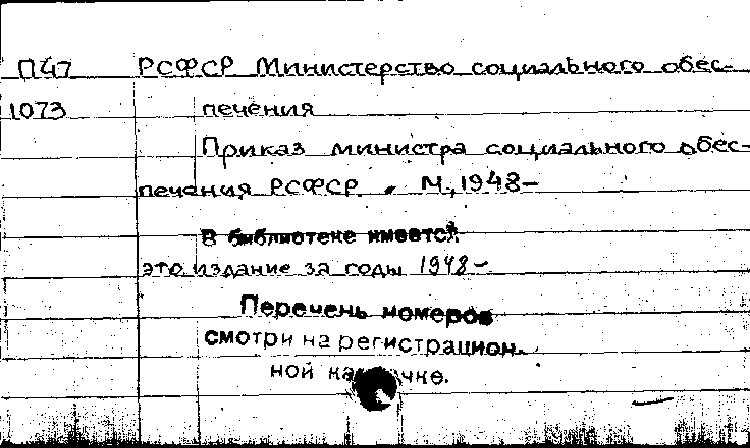 П47 РСФСР Министерство социального обес-
1073 печения
Приказ министра социального обес-
печения РСФСР. М., 1948-
В библиотеке имеется
это издание за годы 1948-
Перечень номеров
смотри на регистрацион.
ной